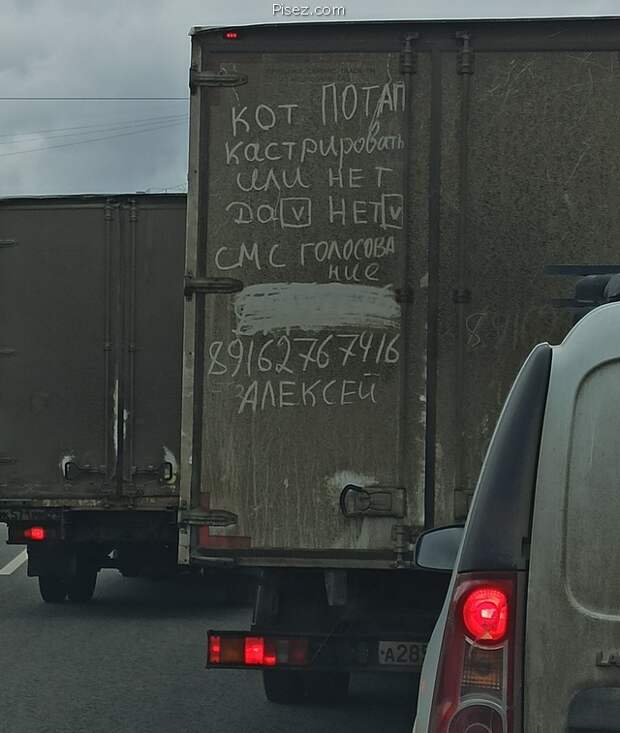 Pisez.com
КОТ ПОТАП
кастрировать
или НЕТ
Да v НЕТ v
СМС ГОЛОСОВА
ние
89162767416
АЛЕКСЕЙ
А285